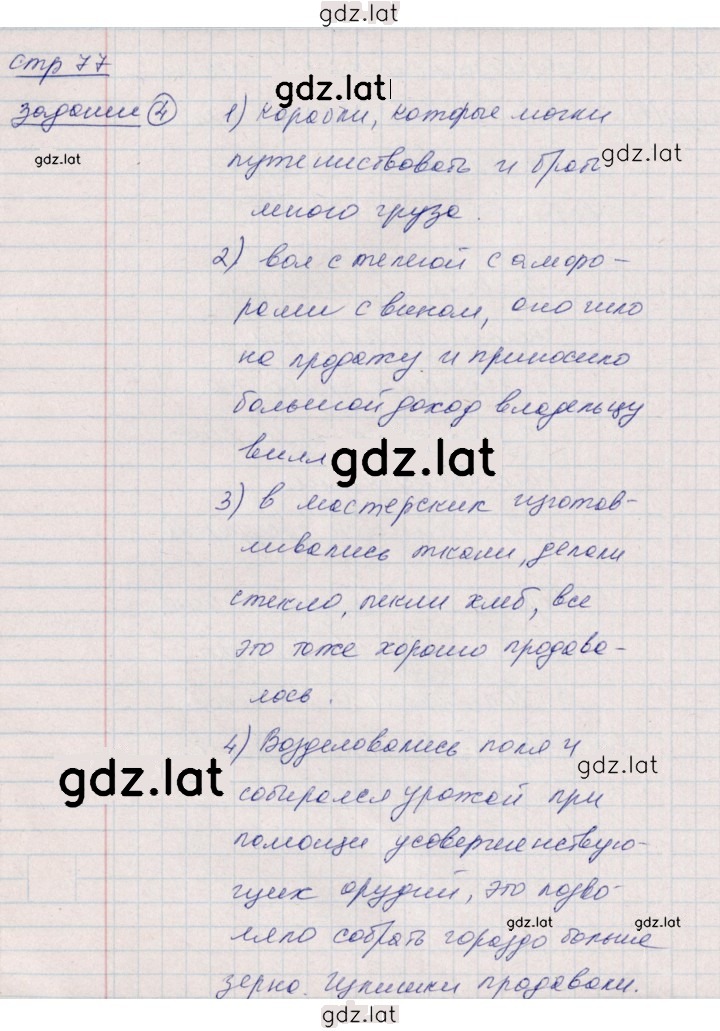 gdz.lat
стр 77
gdz.lat
задание 4 1) корабли, которые могли
gdz.lat
путешествовать и брать gdz.lat
много груза.
2) вол с телегой с амфо-
рами с вином, оно шло
на продажу и приносило
большой доход владельцу
вилл
gdz.lat
3) в мастерских изготав-
ливались ткани, делали
стекло, пекли хлеб, все
это тоже хорошо продава-
лось.
4) Возделовались поля и
gdz.lat
gdz.lat
собирался урожай при
помощи усовершенствую-
щих орудий, это позво-
gdz.lat gdz.lat
ляло собрать гораздо больше
зерна. Излишки продавали.
gdz.lat